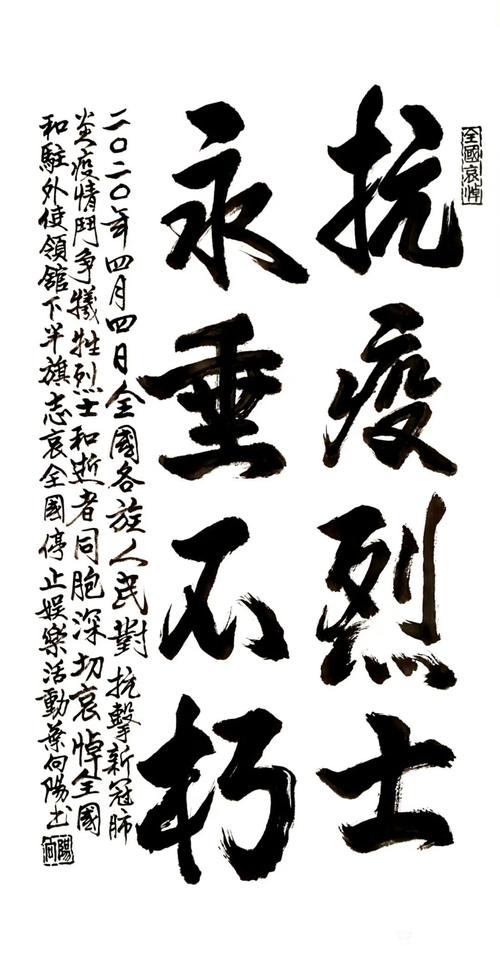 全國哀悼
抗疫烈士
永垂不朽
二〇二〇年四月四日全國各族人民對抗擊新冠肺
炎疫情鬥争犧牲烈士和逝者同胞深切哀悼全國
和駐外使領舘下半旗志哀全國停止娱樂活動葉向陽书
向陽